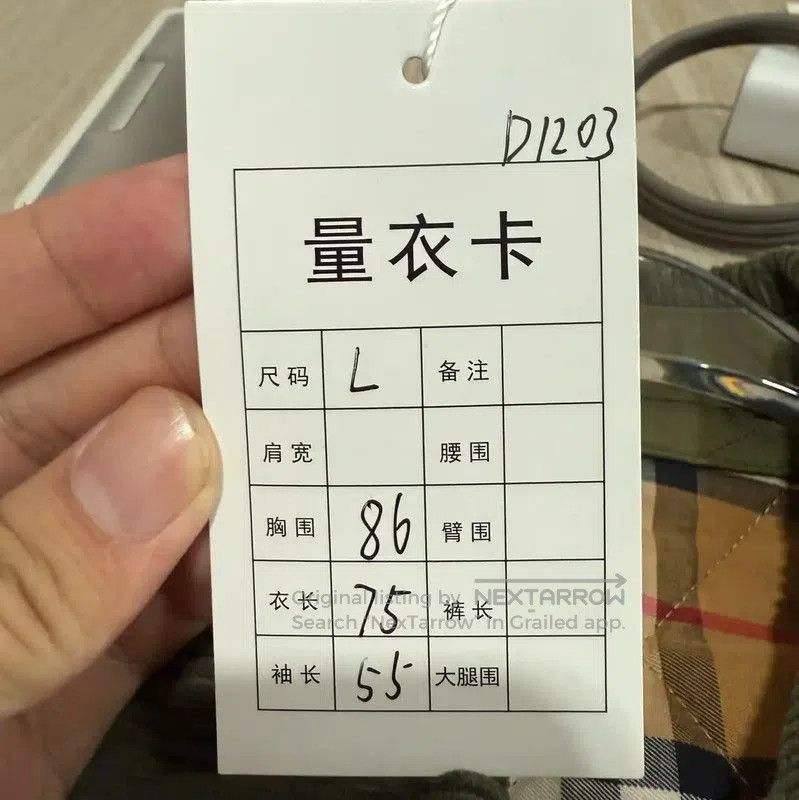 D1203
量衣卡
尺码 L 备注
肩宽 腰围
胸围 86 臂围
衣长 75 裤长
袖长 55 大腿围
Original listing by NEXTARROW
Search "NexTarrow" in Grailed app.